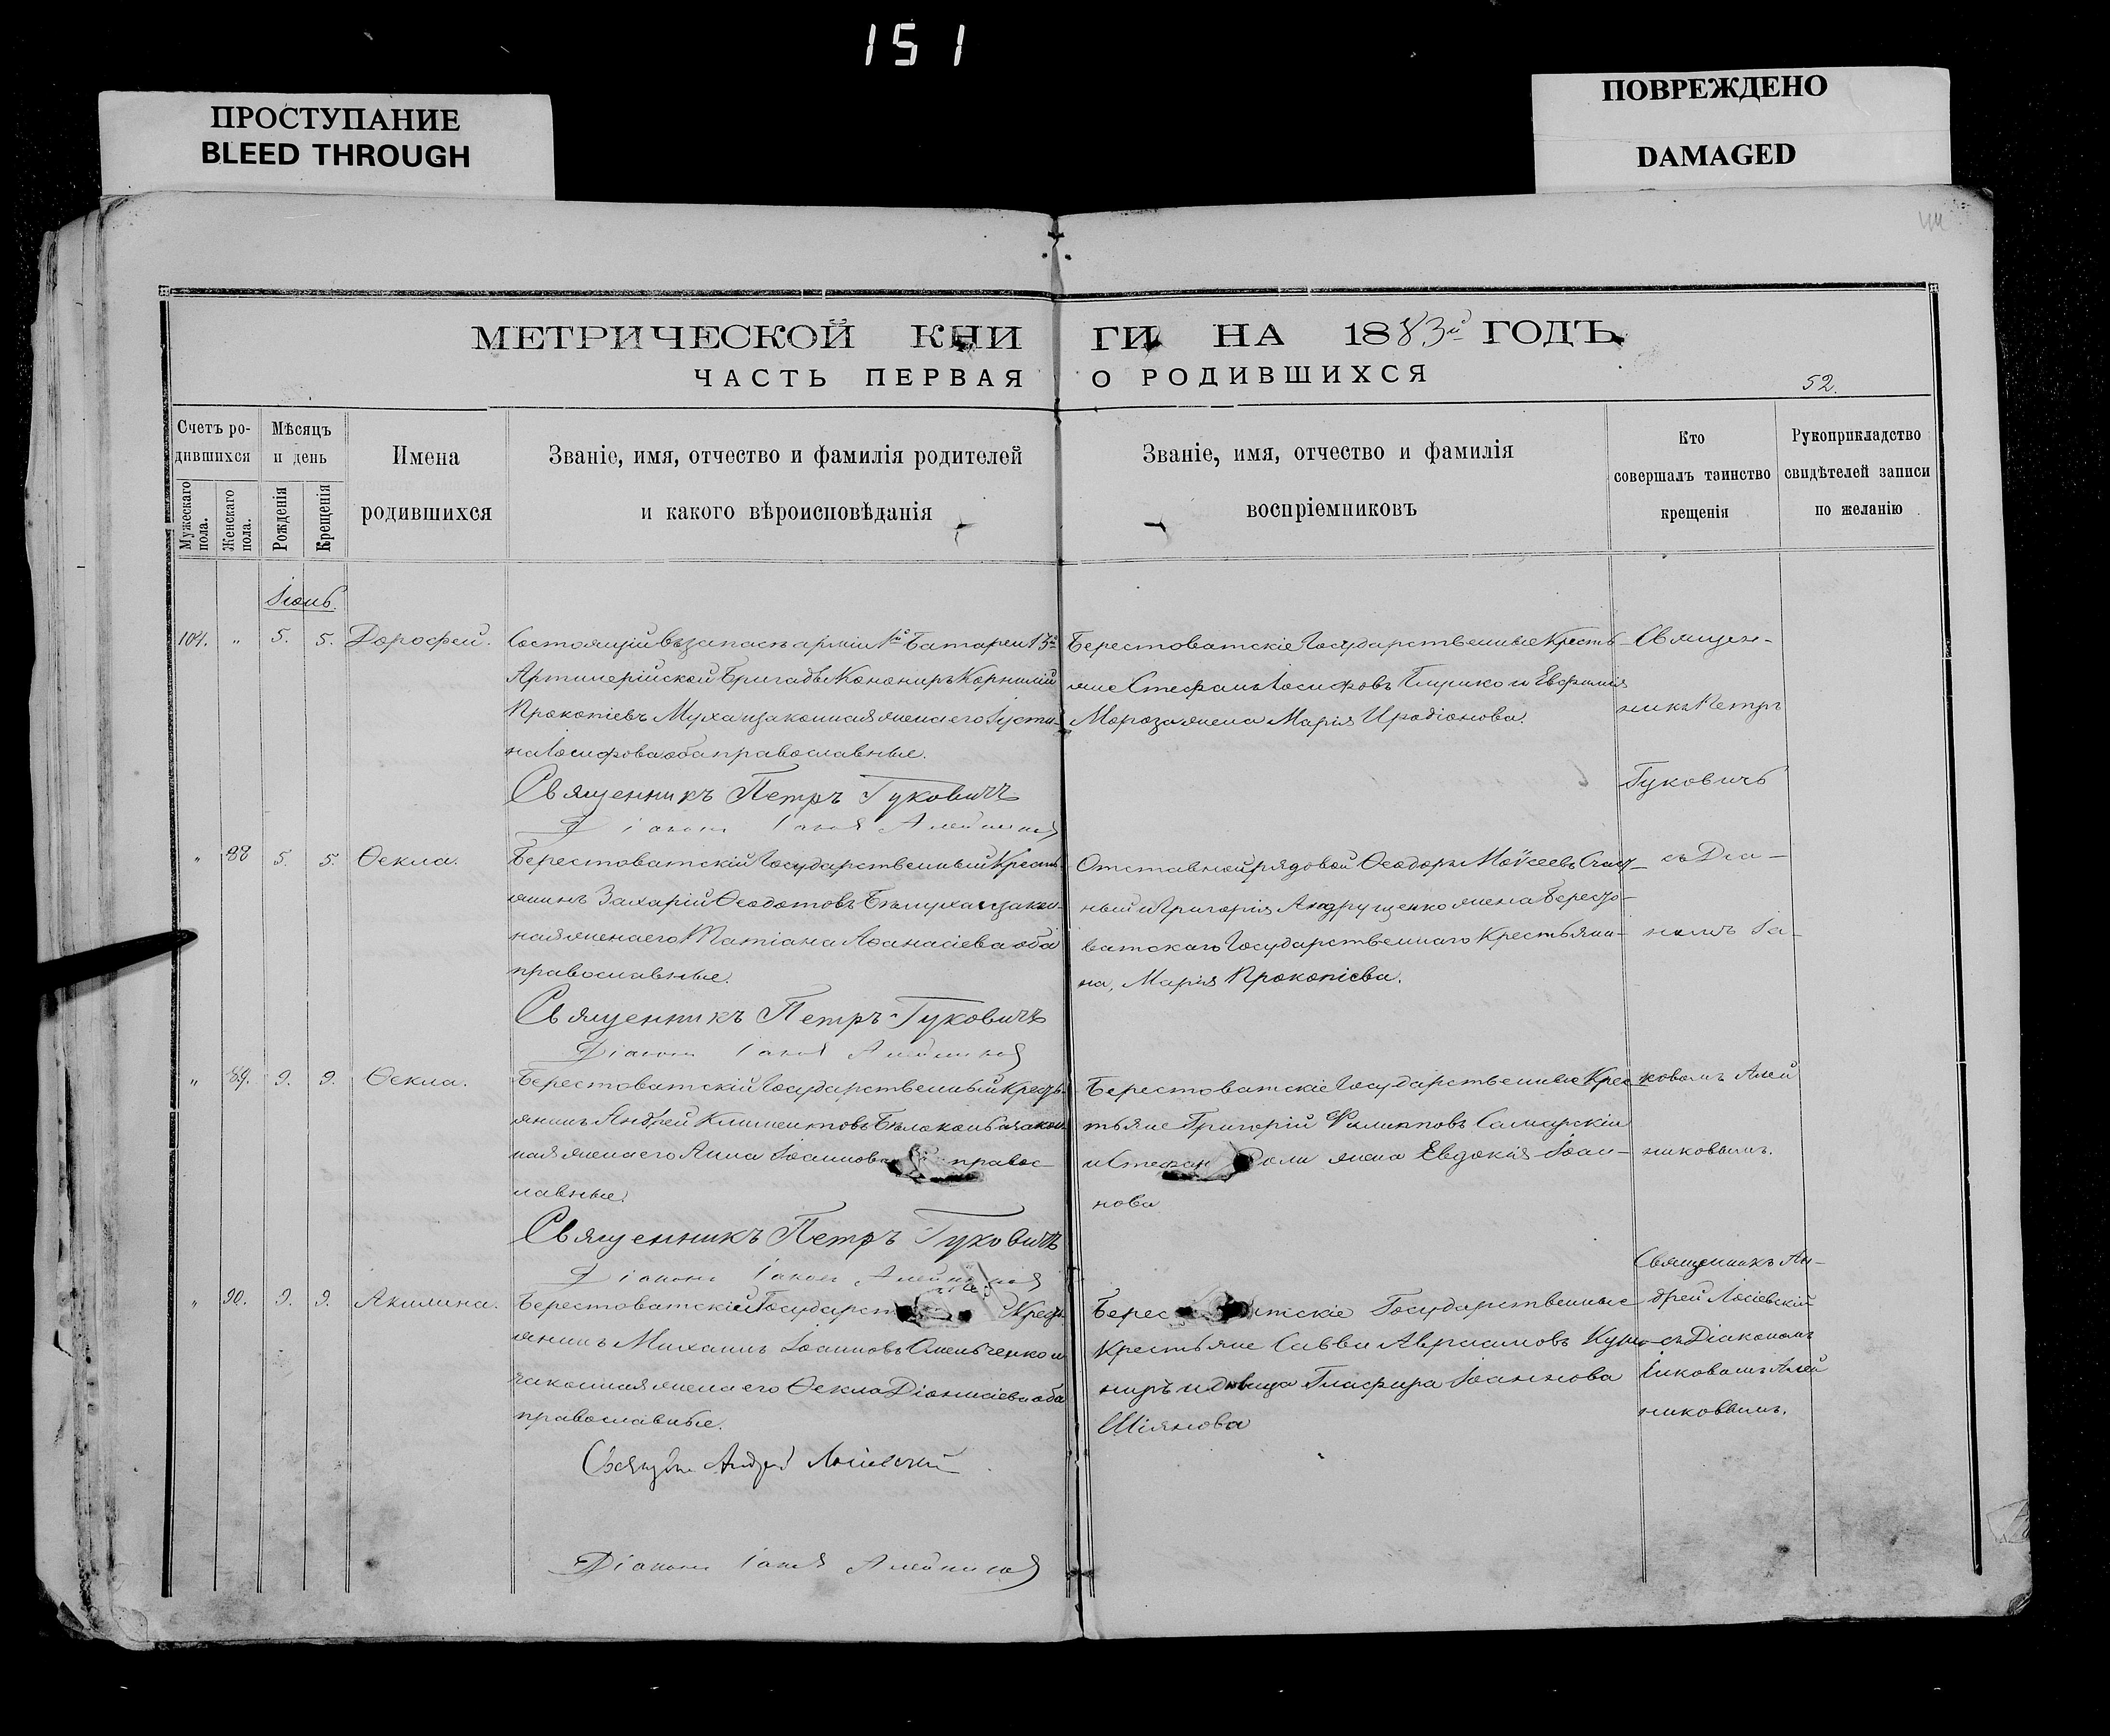 151
ПРОСТУПАНИЕ
BLEED THROUGH
ПОВРЕЖДЕНО
DAMAGED
44
МЕТРИЧЕСКОЙ КНИГИ НА 1883й ГОДЪ
ЧАСТЬ ПЕРВАЯ О РОДИВШИХСЯ
52.
Счетъ ро-
дившихся
Мужескаго пола.
Женскаго пола.
Мѣсяцъ
и день
Рожденія
Крещенія
Имена
родившихся
Званіе, имя, отчество и фамилія родителей
и какого вѣроисповѣданія
Званіе, имя, отчество и фамилія
воспріемниковъ
Кто
совершалъ таинство
крещенія
Рукоприкладство
свидѣтелей записи
по желанію
Іюнь.
104. " 5. 5. Дорофей.
Состоящій въ запасѣ арміи 1й Батареи 13й
Артилерійской Бригады Канониръ Корнилій
Прокопіевъ Муха и законная жена его Іусти-
на Іосифова оба православные.
Священникъ Петръ Гуковичъ
Діаконъ Іаковъ Алейниковъ
Берестоватскіе Государственные Кресть-
яне Стефанъ Іосифовъ и Евфимія
Мороза жена Марія Иродіонова.
Священ-
никъ Петръ
Гуковичъ
" 88 5. 5. Ѳекла.
Берестоватскій Государственный Кресть-
янинъ Захарій Ѳеодотовъ и закон-
ная жена его Татіана Аѳанасіева оба
православные.
Священникъ Петръ Гуковичъ
Діаконъ Іаковъ Алейниковъ
Отставной рядовой Ѳеодоръ Моѵсеевъ
ный и Григорія Андрущенко жена Бересто-
ватскаго Государственнаго Крестьяни-
на, Марія Прокопіева.
съ Діа-
кономъ Іа-
" 89. 9. 9. Ѳекла.
Берестоватскій Государственный Кресть-
янинъ Андрей Климентовъ Бѣлоконь и закон-
ная жена его Анна Іоаннова правос-
лавные.
Священникъ Петръ Гуковичъ
Діаконъ Іаковъ Алейниковъ
Берестоватскіе Государственные Крес-
тьяне Григорій Филипповъ Самарскій
и Стефан жена Евдокія Іоан-
нова
ковомъ Алей
никовымъ.
" 90. 9. 9. Акилина.
Берестоватскій Государст Кресть-
янинъ Михаилъ Іоанновъ Омельченко и
законная жена его Ѳекла Діонисіева оба
православные.
Андрей Лосіевскій
Діаконъ Іаковъ Алейниковъ
Берес атскіе Государственные
Крестьяне Савва Авраамовъ Куш-
ниръ и дѣвица Гласфира Іоаннова
Шіянова
Священникъ Ан-
дрей Лосіевскій
съ Діакономъ
Іаковомъ Алей
никовымъ.